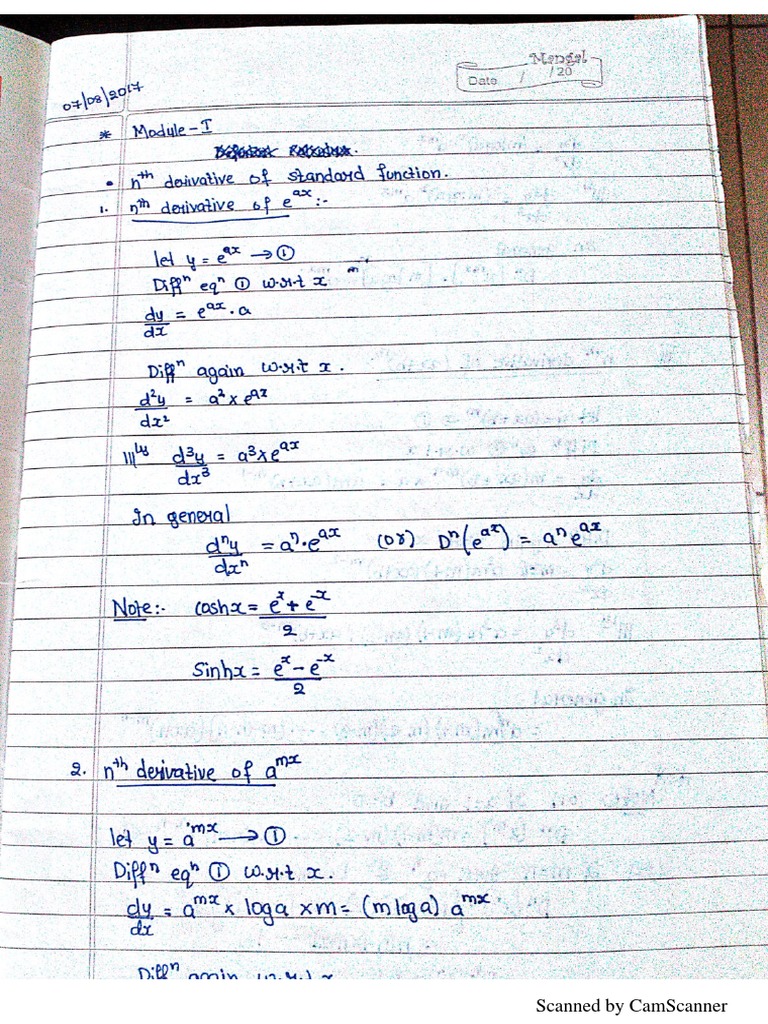 Mangal
Date / /20
07/08/2017
* Module-I
• nth derivative of standard function.
1. nth derivative of e^ax:-
let y = e^ax → ①
Diffn eqn ① w.r.t x
dy/dx = e^ax · a
Diffn again w.r.t x.
d²y/dx² = a² x e^ax
|||ly d³y/dx³ = a³ x e^ax
In general
dⁿy/dxⁿ = aⁿ · e^ax (or) Dⁿ(e^ax) = aⁿ e^ax
Note:- coshx = (e^x + e^-x)/2
Sinhx = (e^x − e^-x)/2
2. nth derivative of a^mx
let y = a^mx → ①
Diffn eqn ① w.r.t x.
dy/dx = a^mx × log a × m = (m log a) a^mx
Diffn again w.r.t x
Scanned by CamScanner